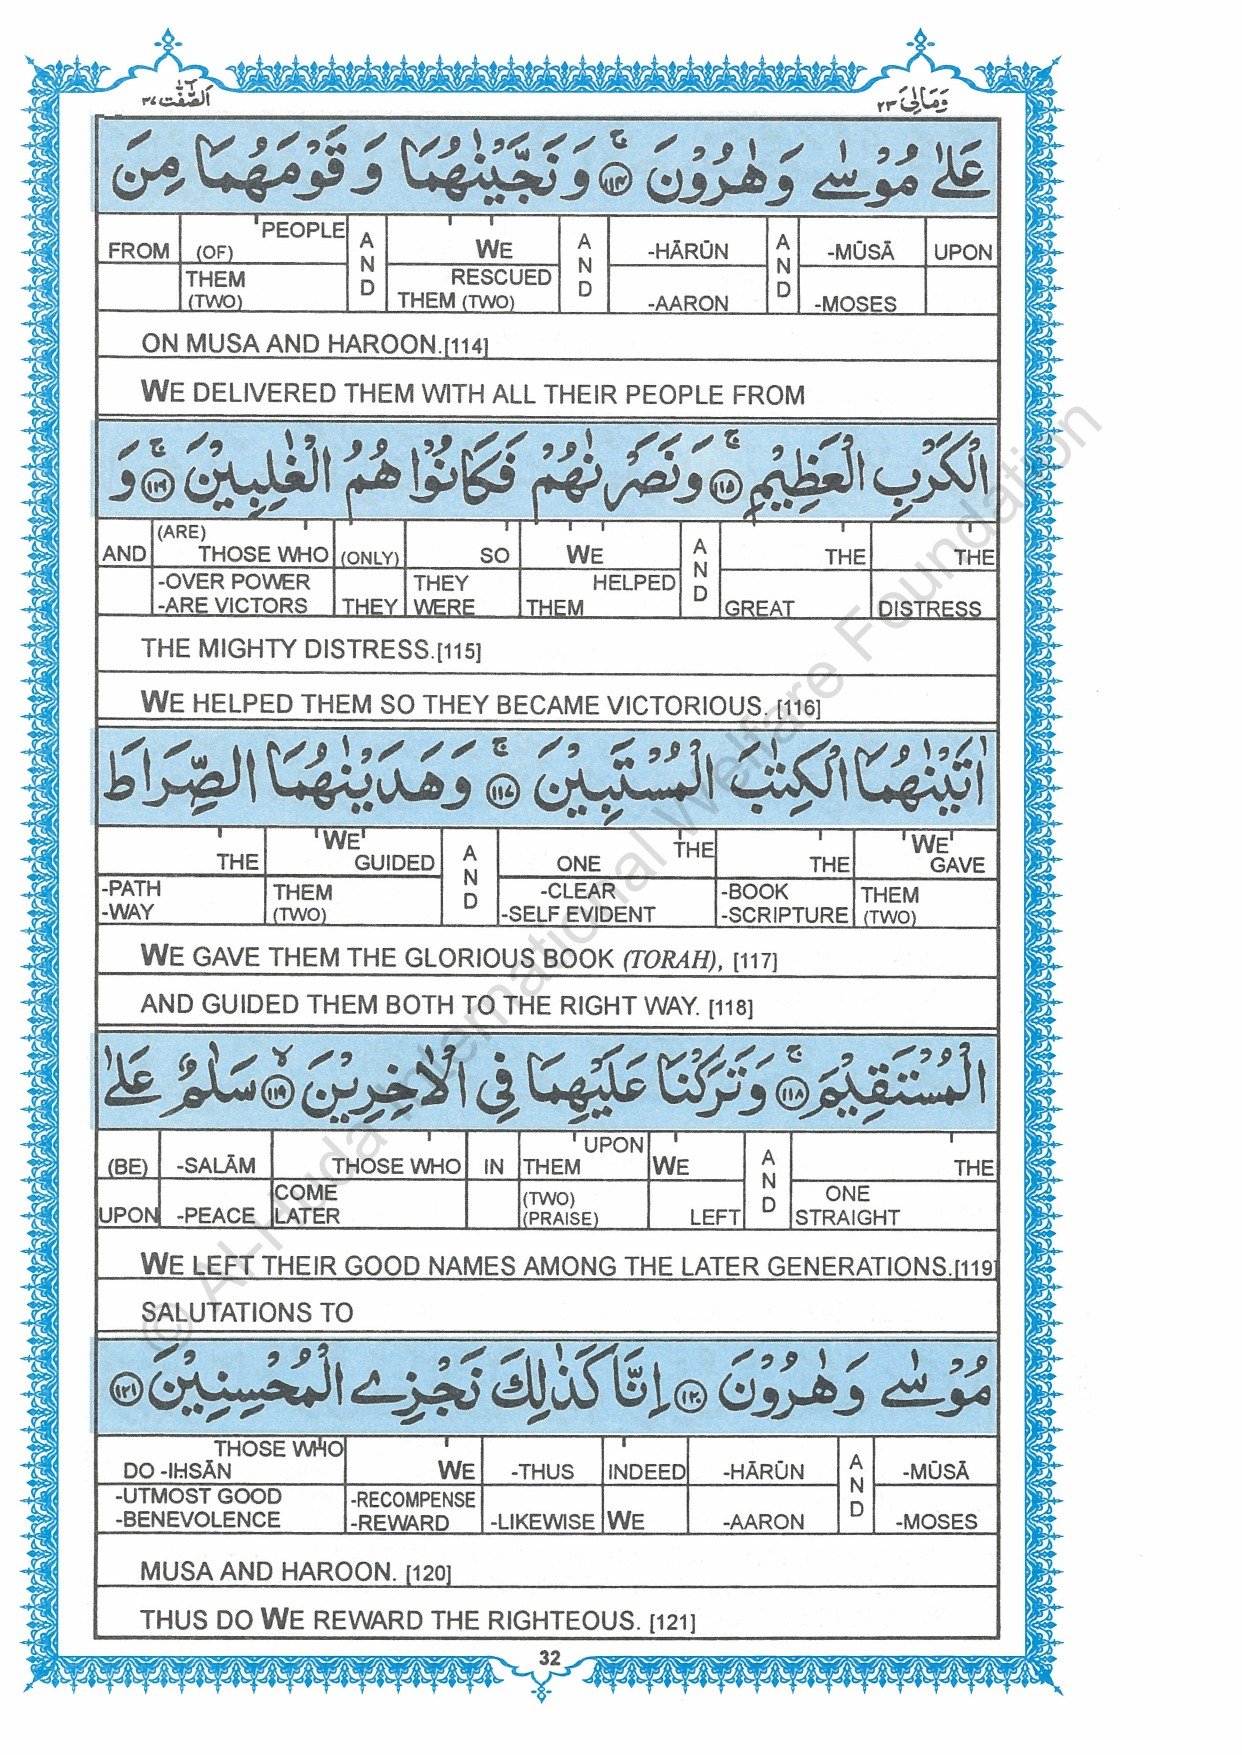 وَمَالِیَ ٢٣
اَلصّٰٓفّٰت ٣٧
عَلٰى مُوْسٰى وَهٰرُوْنَ ۚ ١١٤ وَنَجَّيْنٰهُمَا وَقَوْمَهُمَا مِنَ
FROM (OF) PEOPLE AND WE AND -HĀRŪN AND -MŪSĀ UPON
THEM (TWO) RESCUED THEM (TWO) -AARON -MOSES
ON MUSA AND HAROON.[114]
WE DELIVERED THEM WITH ALL THEIR PEOPLE FROM
الْكَرْبِ الْعَظِيْمِ ۚ ١١٥ وَنَصَرْنٰهُمْ فَكَانُوْا هُمُ الْغٰلِبِيْنَ ۚ ١١٦ وَ
AND (ARE) THOSE WHO (ONLY) SO WE AND THE THE
-OVER POWER -ARE VICTORS THEY THEY WERE HELPED THEM GREAT DISTRESS
THE MIGHTY DISTRESS.[115]
WE HELPED THEM SO THEY BECAME VICTORIOUS. [116]
اٰتَيْنٰهُمَا الْكِتٰبَ الْمُسْتَبِيْنَ ۚ ١١٧ وَهَدَيْنٰهُمَا الصِّرَاطَ
THE WE GUIDED AND ONE THE THE WE GAVE
-PATH -WAY THEM (TWO) -CLEAR -SELF EVIDENT -BOOK -SCRIPTURE THEM (TWO)
WE GAVE THEM THE GLORIOUS BOOK (TORAH), [117]
AND GUIDED THEM BOTH TO THE RIGHT WAY. [118]
الْمُسْتَقِيْمَ ۚ ١١٨ وَتَرَكْنَا عَلَيْهِمَا فِى الْاٰخِرِيْنَ ۙ ١١٩ سَلٰمٌ عَلٰى
(BE) -SALĀM THOSE WHO IN UPON THEM WE AND THE
UPON -PEACE COME LATER (TWO) (PRAISE) LEFT ONE STRAIGHT
WE LEFT THEIR GOOD NAMES AMONG THE LATER GENERATIONS.[119]
SALUTATIONS TO
مُوْسٰى وَهٰرُوْنَ ١٢٠ اِنَّا كَذٰلِكَ نَجْزِى الْمُحْسِنِيْنَ ١٢١
THOSE WHO DO -IHSĀN WE -THUS INDEED -HĀRŪN AND -MŪSĀ
-UTMOST GOOD -BENEVOLENCE -RECOMPENSE -REWARD -LIKEWISE WE -AARON -MOSES
MUSA AND HAROON. [120]
THUS DO WE REWARD THE RIGHTEOUS. [121]
32
© Al-Huda International Welfare Foundation